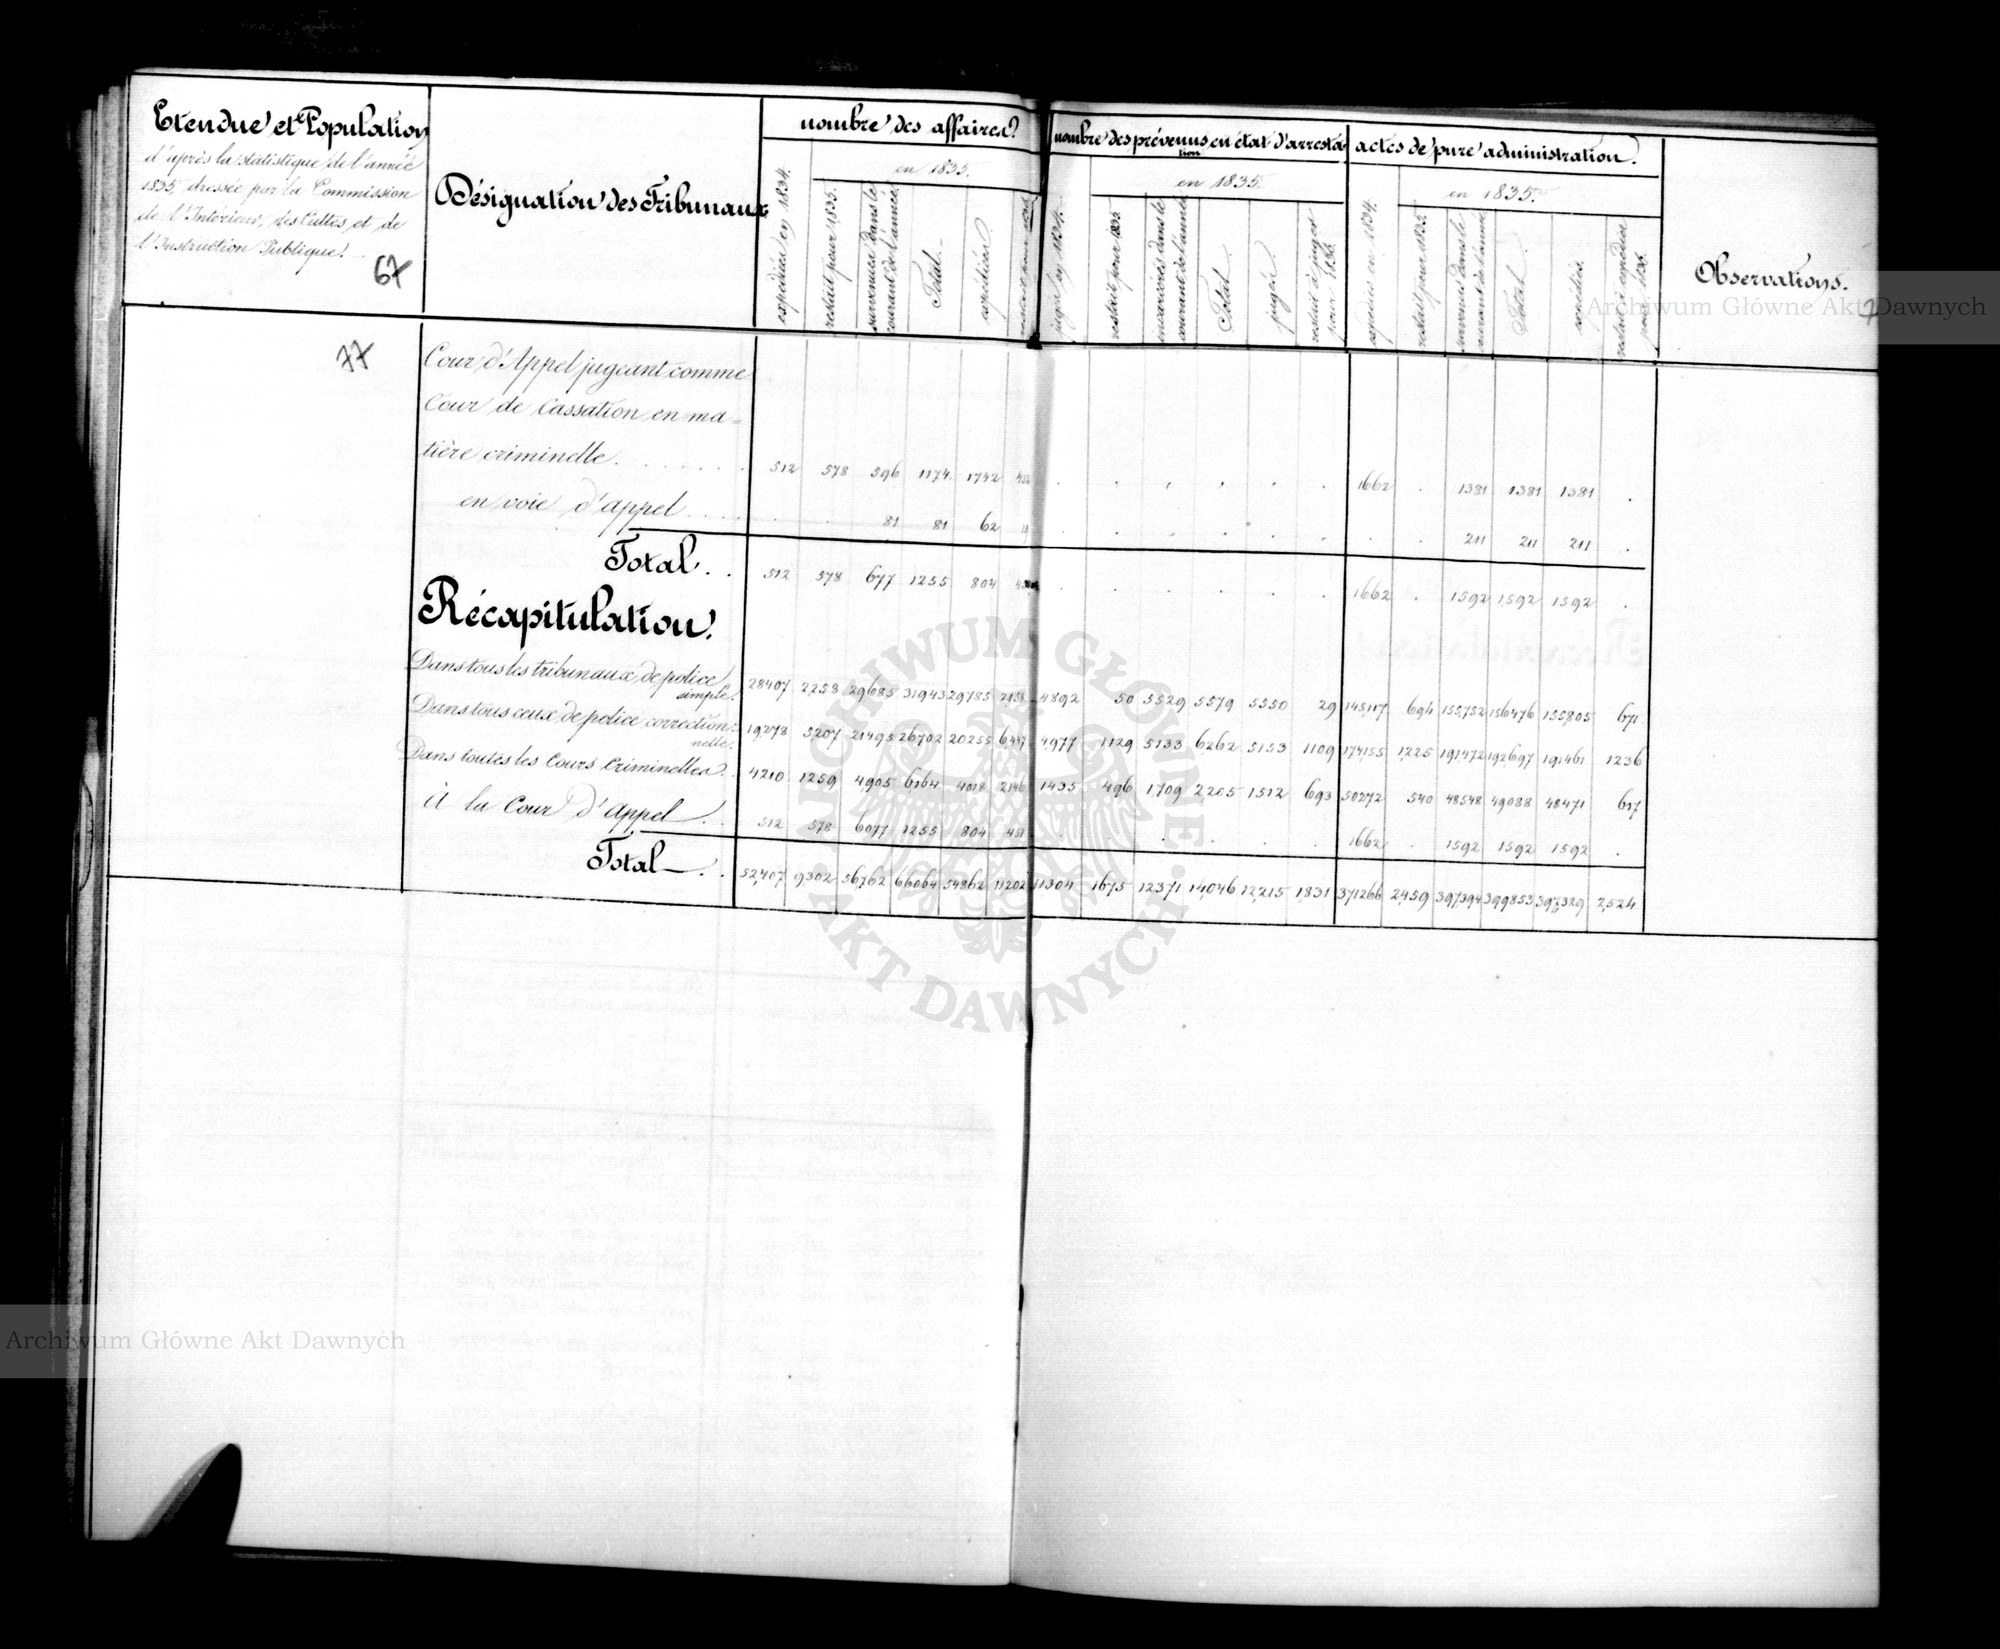 Etendue et Population
d'après la statistique de l'année
1835, dressée par la Commission
de l'Intérieur, des Cultes, et de
l'Instruction Publique.
67
Désignation des Tribunaux
nombre des affaires
expédiées en 1834.
en 1835.
restait pour 1835.
survenues dans le
courant de l'année
Total
expédiées
nombre des prévenus en état d'arresta
tion
jugés en 1834.
en 1835.
restait pour 1835
incarcérés dans le
courant de l'année
Total
jugés
restait à juger
pour 1836.
actes de pure administration.
expédiés en 1834.
en 1835.
restait pour 1835.
survenus dans le
courant de l'année
Total
expédiés
Observations.
Archiwum Główne Akt Dawnych
77
Cour d'Appel jugeant comme
Cour de Cassation en ma-
tière criminelle. 512 578 596 1174 1742 1662 1381 1381 1381
en voie d'appel 81 81 62 211 211 211
Total 512 578 677 1255 804 1662 1592 1592 1592
Récapitulation.
Dans tous les tribunaux de police
simple. 28407 2,258 29685 31943 29785 2158 4892 50 5529 5579 5550 29 145,117 694 155,752 156476 155,805 671
Dans tous ceux de police correction-
nelle. 19,278 5207 21495 26702 20255 6447 4977 1129 5133 6262 5153 1109 174,155 1,225 191,472 192,697 191,461 1236
Dans toutes les Cours Criminelles. 4210 1259 4905 6164 4018 2146 1435 496 1,709 2205 1512 693 50272 540 48548 49088 48471 617
à la Cour d'Appel 512 578 6077 1255 804 451 1662 1592 1592 1592
Total 52,407 9,302 56,762 66064 54862 11202 11304 1675 12371 14,046 12,215 1,831 371266 2,459 397,394 399853 397,329 2,524
ARCHIWUM GŁÓWNE AKT DAWNYCH
Archiwum Główne Akt Dawnych